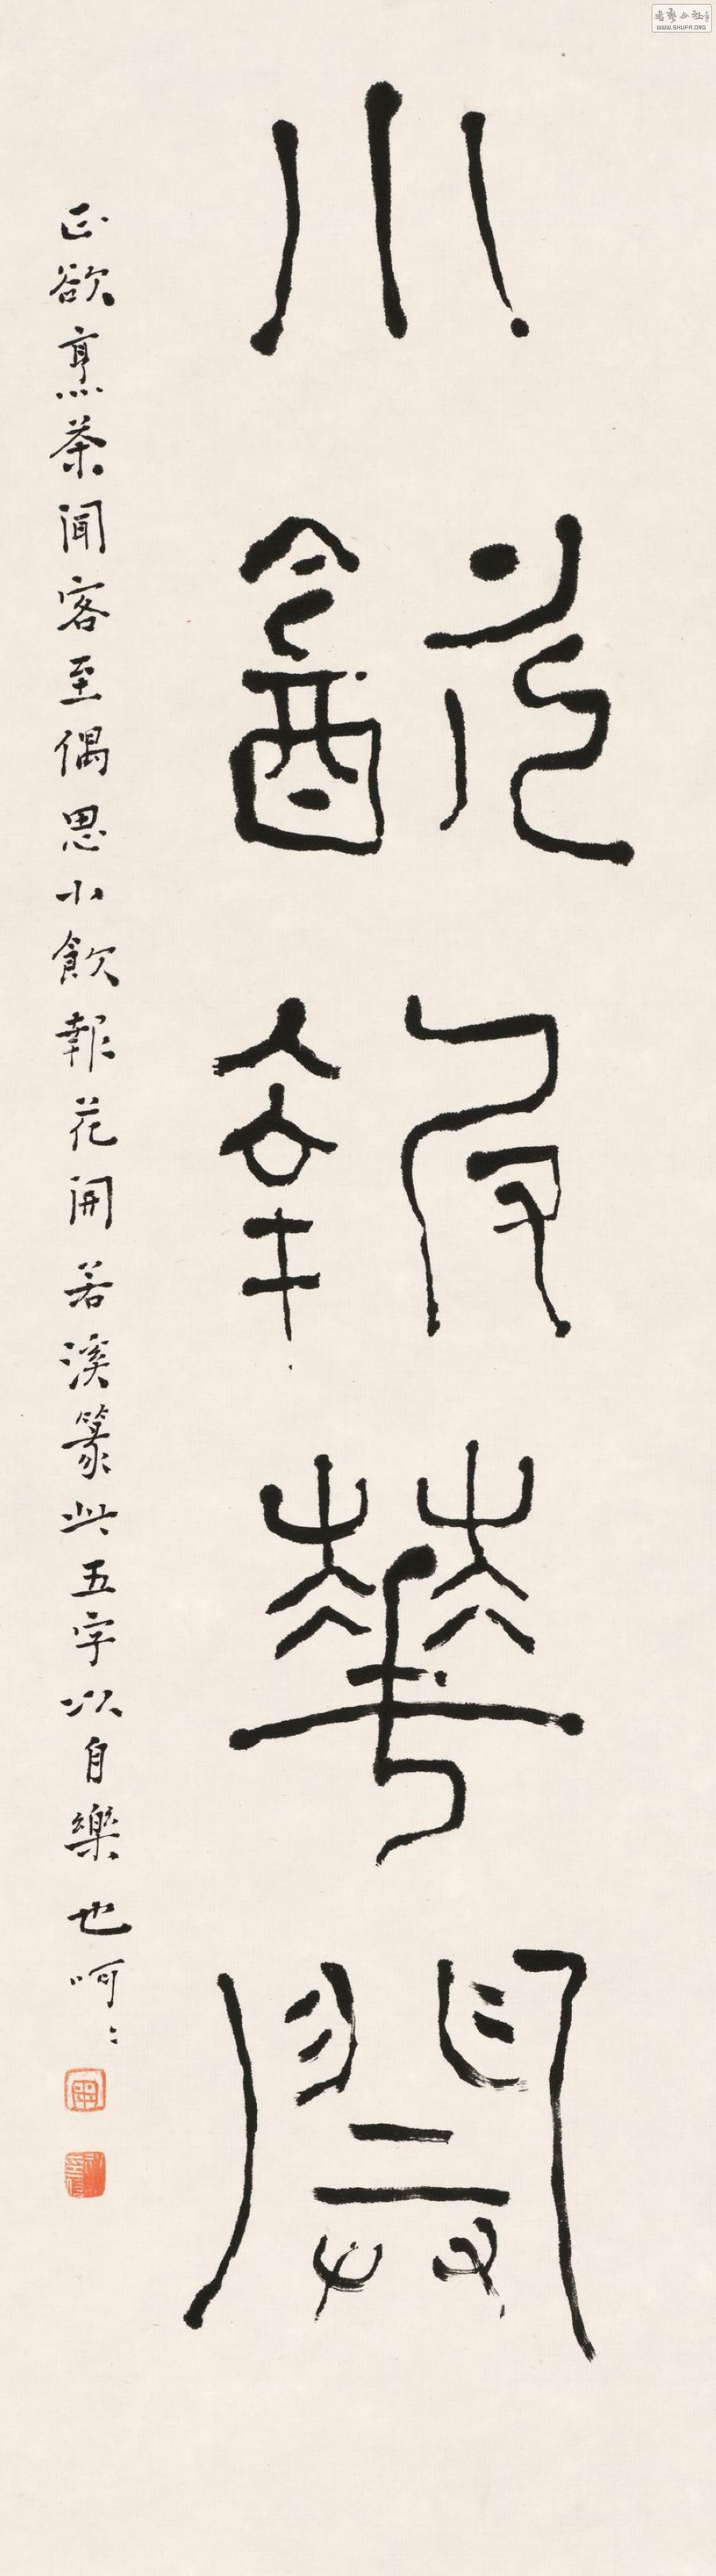 小飲報華開
正欲烹茶聞客至偶思小飲報花開若溪篆此五字以自樂也呵〻
WWW.SHUFA.ORG